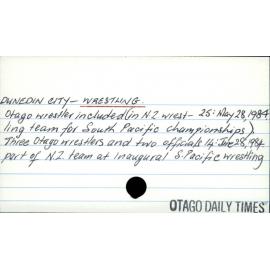 DUNEDIN CITY - WRESTLING.
Otago wrestler included (in N.Z. wrest- 25: May 28, 1984
ling team for South Pacific championships)
Three Otago wrestlers and two officials 14: June 28, 984
part of N.Z. team at inaugural S. Pacific wrestling
OTAGO DAILY TIMES